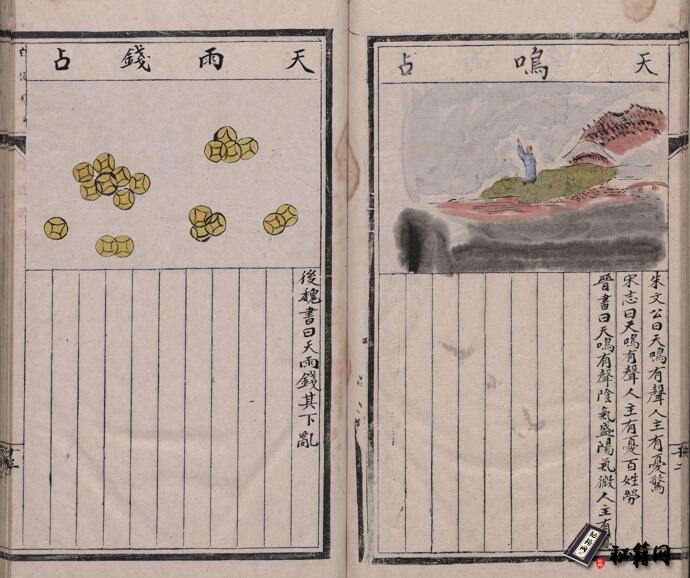 天鳴占
朱文公曰天鳴有聲人主有憂驚
宋志曰天鳴有聲人主有憂百姓勞
晉書曰天鳴有聲陰氣盛陽氣微人主有
天雨錢占
後魏書曰天雨錢其下亂
秘籍网